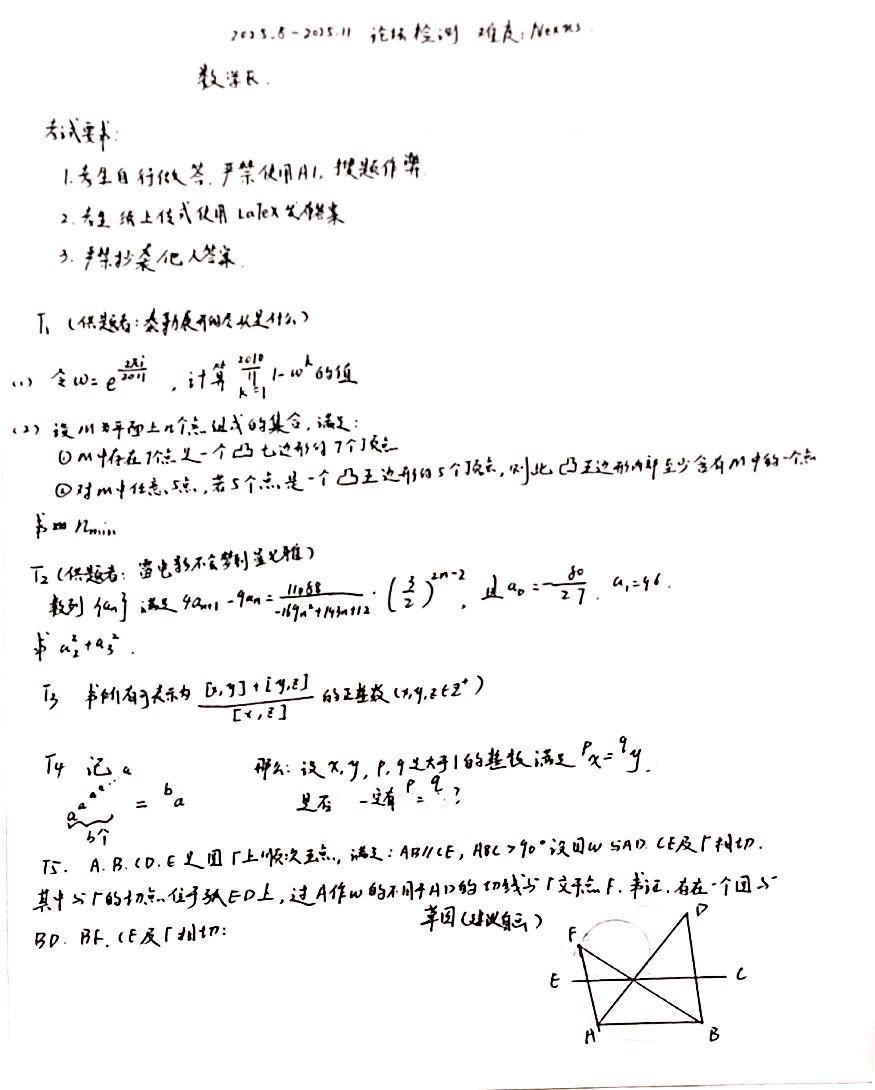 2025.8-2025.11 论坛检测 难度:Nexus.
数学R.
考试要求:
1.考生自行做答.严禁使用AI,搜题作弊
2.考生 纸上传或使用 LaTex 发布答案
3.严禁抄袭他人答案
T1 (供题者:泰勒展开的尽头是什么)
(1) 令ω=e^{\frac{2πi}{2011}},计算 \prod_{k=1}^{2010} 1-ω^k 的值
(2) 设M为平面上n个点组成的集合,满足:
①M中存在7个点是一个凸七边形的7个顶点
②对M中任意5点,若5个点是一个凸五边形的5个顶点,则此凸五边形内部至少含有M中的一个点
求 n_{min}
T2 (供题者:雷电影不会梦到)
数列{a_n}满足 4a_{n+1}-9a_n=\frac{11088}{-169n^2+143n+12}·(\frac{3}{2})^{2n-2},且a_0=-\frac{80}{27}. a_1=46.
求 a_2^2+a_3^2.
T3 求所有可表示为 \frac{[x,y]+[y,z]}{[x,z]} 的正整数(x,y,z∈Z^+)
T4 记 a^{a^{a^{a^{⋰^{a}}}}} = {}^{b}a 那么:设x,y,p,q是大于1的整数 满足 {}^{p}x={}^{q}y.
b个 是否一定有 p=q?
T5. A.B.C.D.E是圆Γ上顺次五点,满足:AB∥CE,ABC>90°设圆ω与AD.CE及Γ相切.
其中与Γ的切点位于弧ED上,过A作ω的不同于AD的切线与Γ交于点F.求证.存在一个圆与
BD.BF.CE及Γ相切:
草图(建议自画)
D
F
E
C
A
B